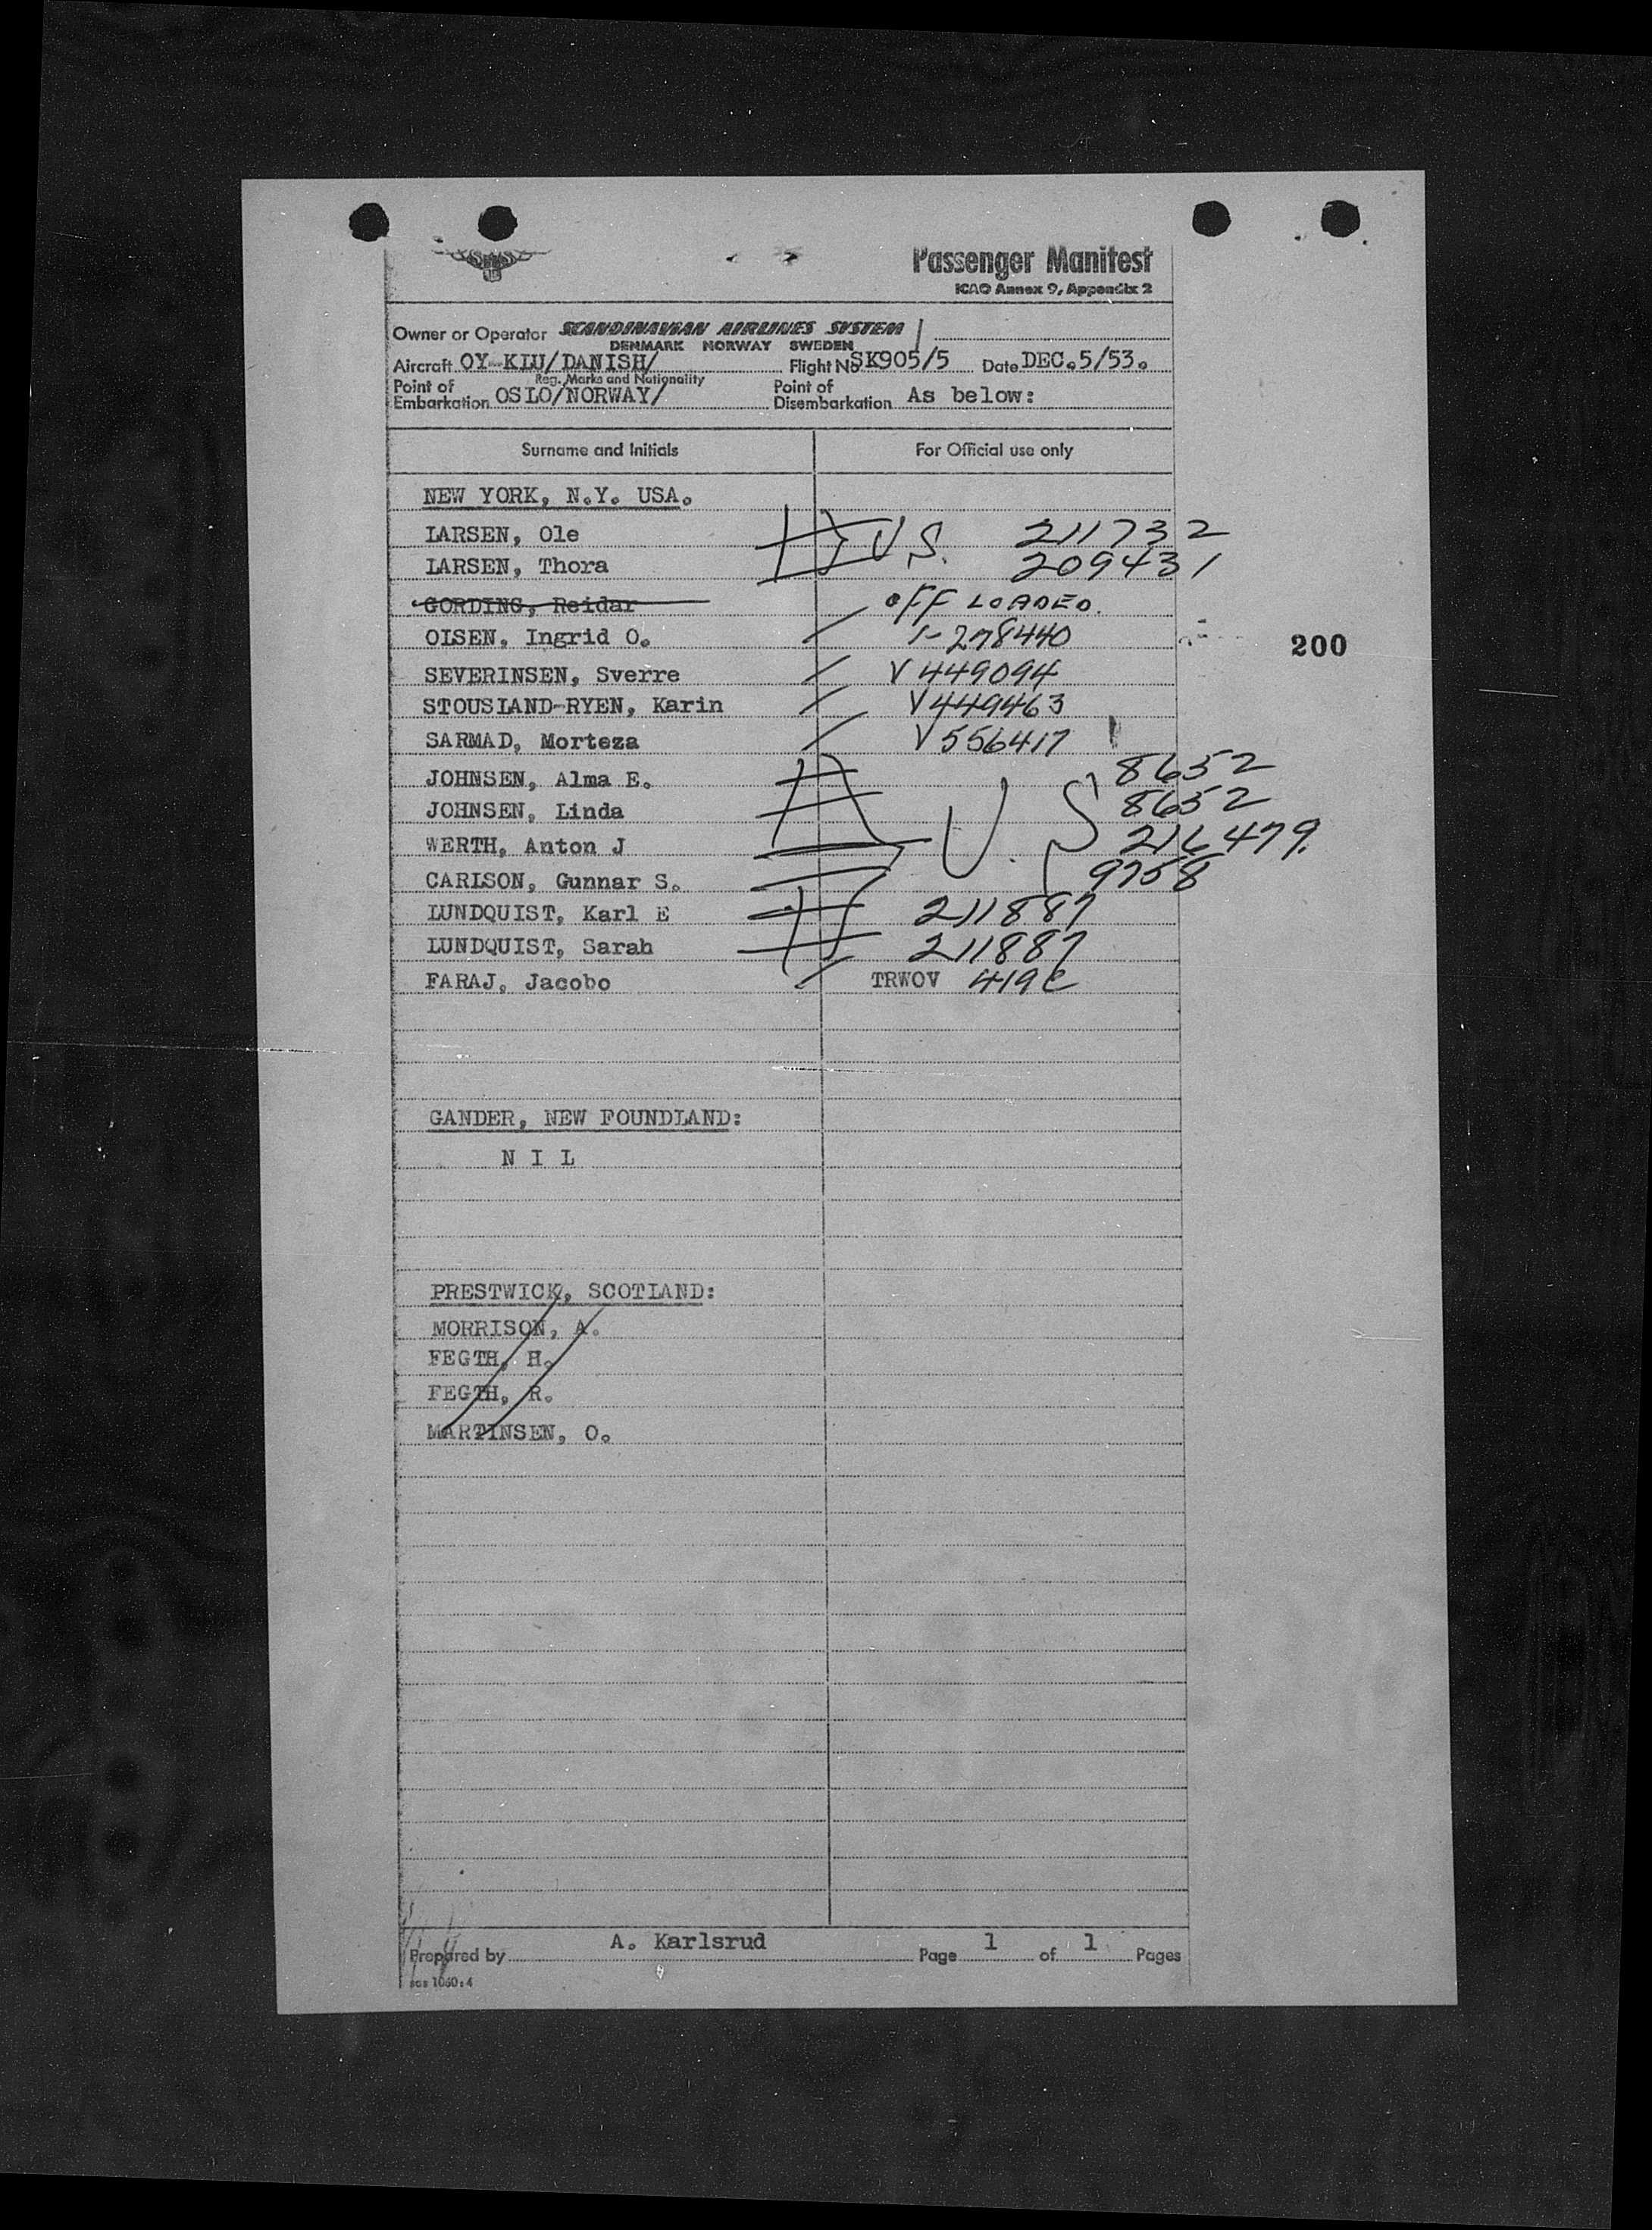 SAS
Passenger Manifest
ICAO Annex 9, Appendix 2
Owner or Operator SCANDINAVIAN AIRLINES SYSTEM
DENMARK NORWAY SWEDEN
Aircraft OY-KLU/DANISH/ Flight No SK905/5 Date DEC.5/53.
Reg. Marks and Nationality
Point of Embarkation OSLO/NORWAY/ Point of Disembarkation As below:
Surname and Initials For Official use only
NEW YORK, N.Y. USA.
LARSEN, Ole U.S. 211732
LARSEN, Thora 209431
GORDING, Reidar OFF LOADED.
OLSEN, Ingrid O. 1-278440
200
SEVERINSEN, Sverre V 449094
STOUSLAND-RYEN, Karin V 449463
SARMAD, Morteza V 556417
JOHNSEN, Alma E. 8652
JOHNSEN, Linda U.S 8652
WERTH, Anton J 216479.
CARLSON, Gunnar S. 9758
LUNDQUIST, Karl E 211887
LUNDQUIST, Sarah 211887
FARAJ, Jacobo TRWOV 419C
GANDER, NEW FOUNDLAND:
N I L
PRESTWICK, SCOTLAND:
MORRISON, A.
FEGTH, H.
FEGTH, R.
MARTINSEN, O.
Prepared by A. Karlsrud Page 1 of 1 Pages
sas 1060:4